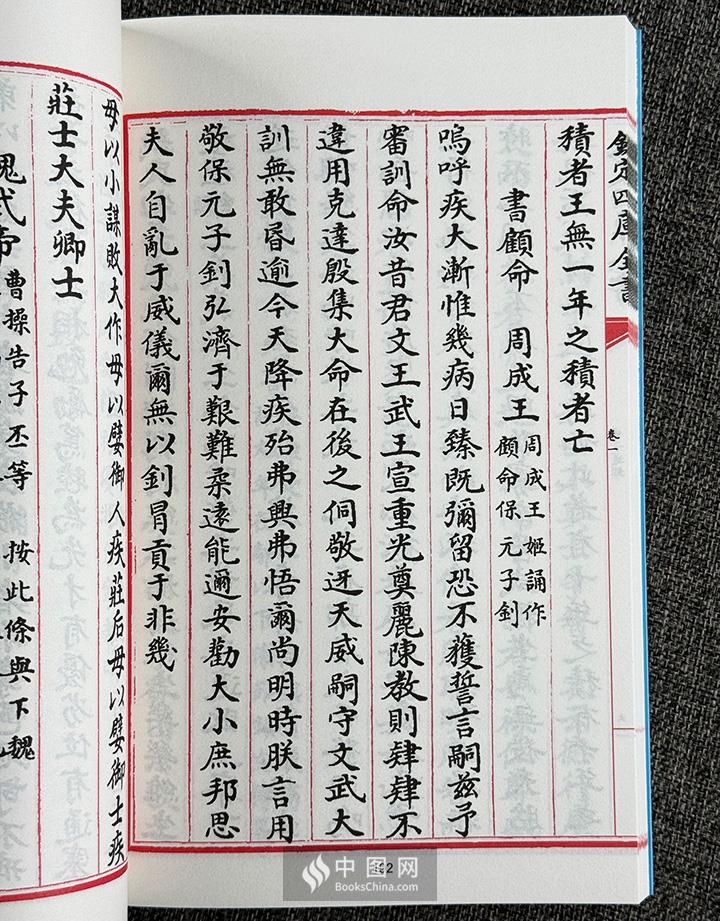 欽定四庫全書
卷一
積者王無一年之積者亡
書顧命 周成王 周成王姬誦作
顧命保元子釗
嗚呼疾大漸惟幾病日臻既彌留恐不獲誓言嗣兹予
審訓命汝昔君文王武王宣重光奠麗陳教則肄肄不
違用克達殷集大命在後之侗敬迓天威嗣守文武大
訓無敢昏逾今天降疾殆弗興弗悟爾尚明時朕言用
敬保元子釗弘濟于艱難柔遠能邇安勸大小庶邦思
夫人自亂于威儀爾無以釗冒貢于非幾
毋以小謀敗大作毋以嬖御人疾莊后毋以嬖御士疾
莊士大夫卿士
魏武帝 曹操告子丕等 按此條與下魏
中图网
BooksChina.com